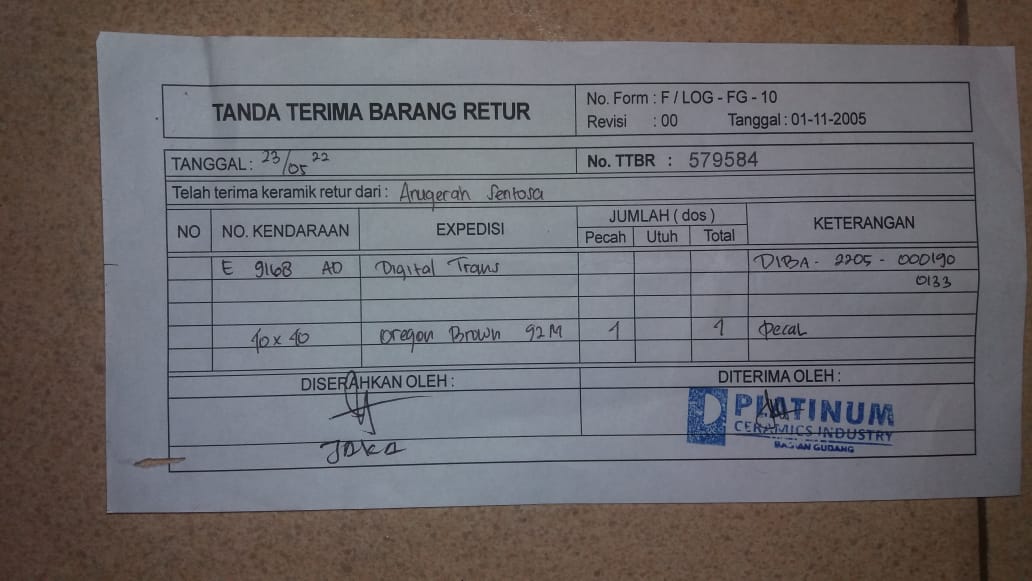 TANDA TERIMA BARANG RETUR
No. Form : F / LOG - FG - 10
Revisi : 00 Tanggal : 01-11-2005
TANGGAL : 23/05 22
No. TTBR : 579584
Telah terima keramik retur dari : Anugerah Sentosa
NO NO. KENDARAAN EXPEDISI JUMLAH ( dos ) KETERANGAN
Pecah Utuh Total
E 9168 AD Digital Trans DIBA - 2205 - 000190
0133
40 x 40 Oregon Brown 92 M 1 1 Pecah
DISERAHKAN OLEH : DITERIMA OLEH :
PLATINUM
CERAMICS INDUSTRY
BAGIAN GUDANG
JAKA